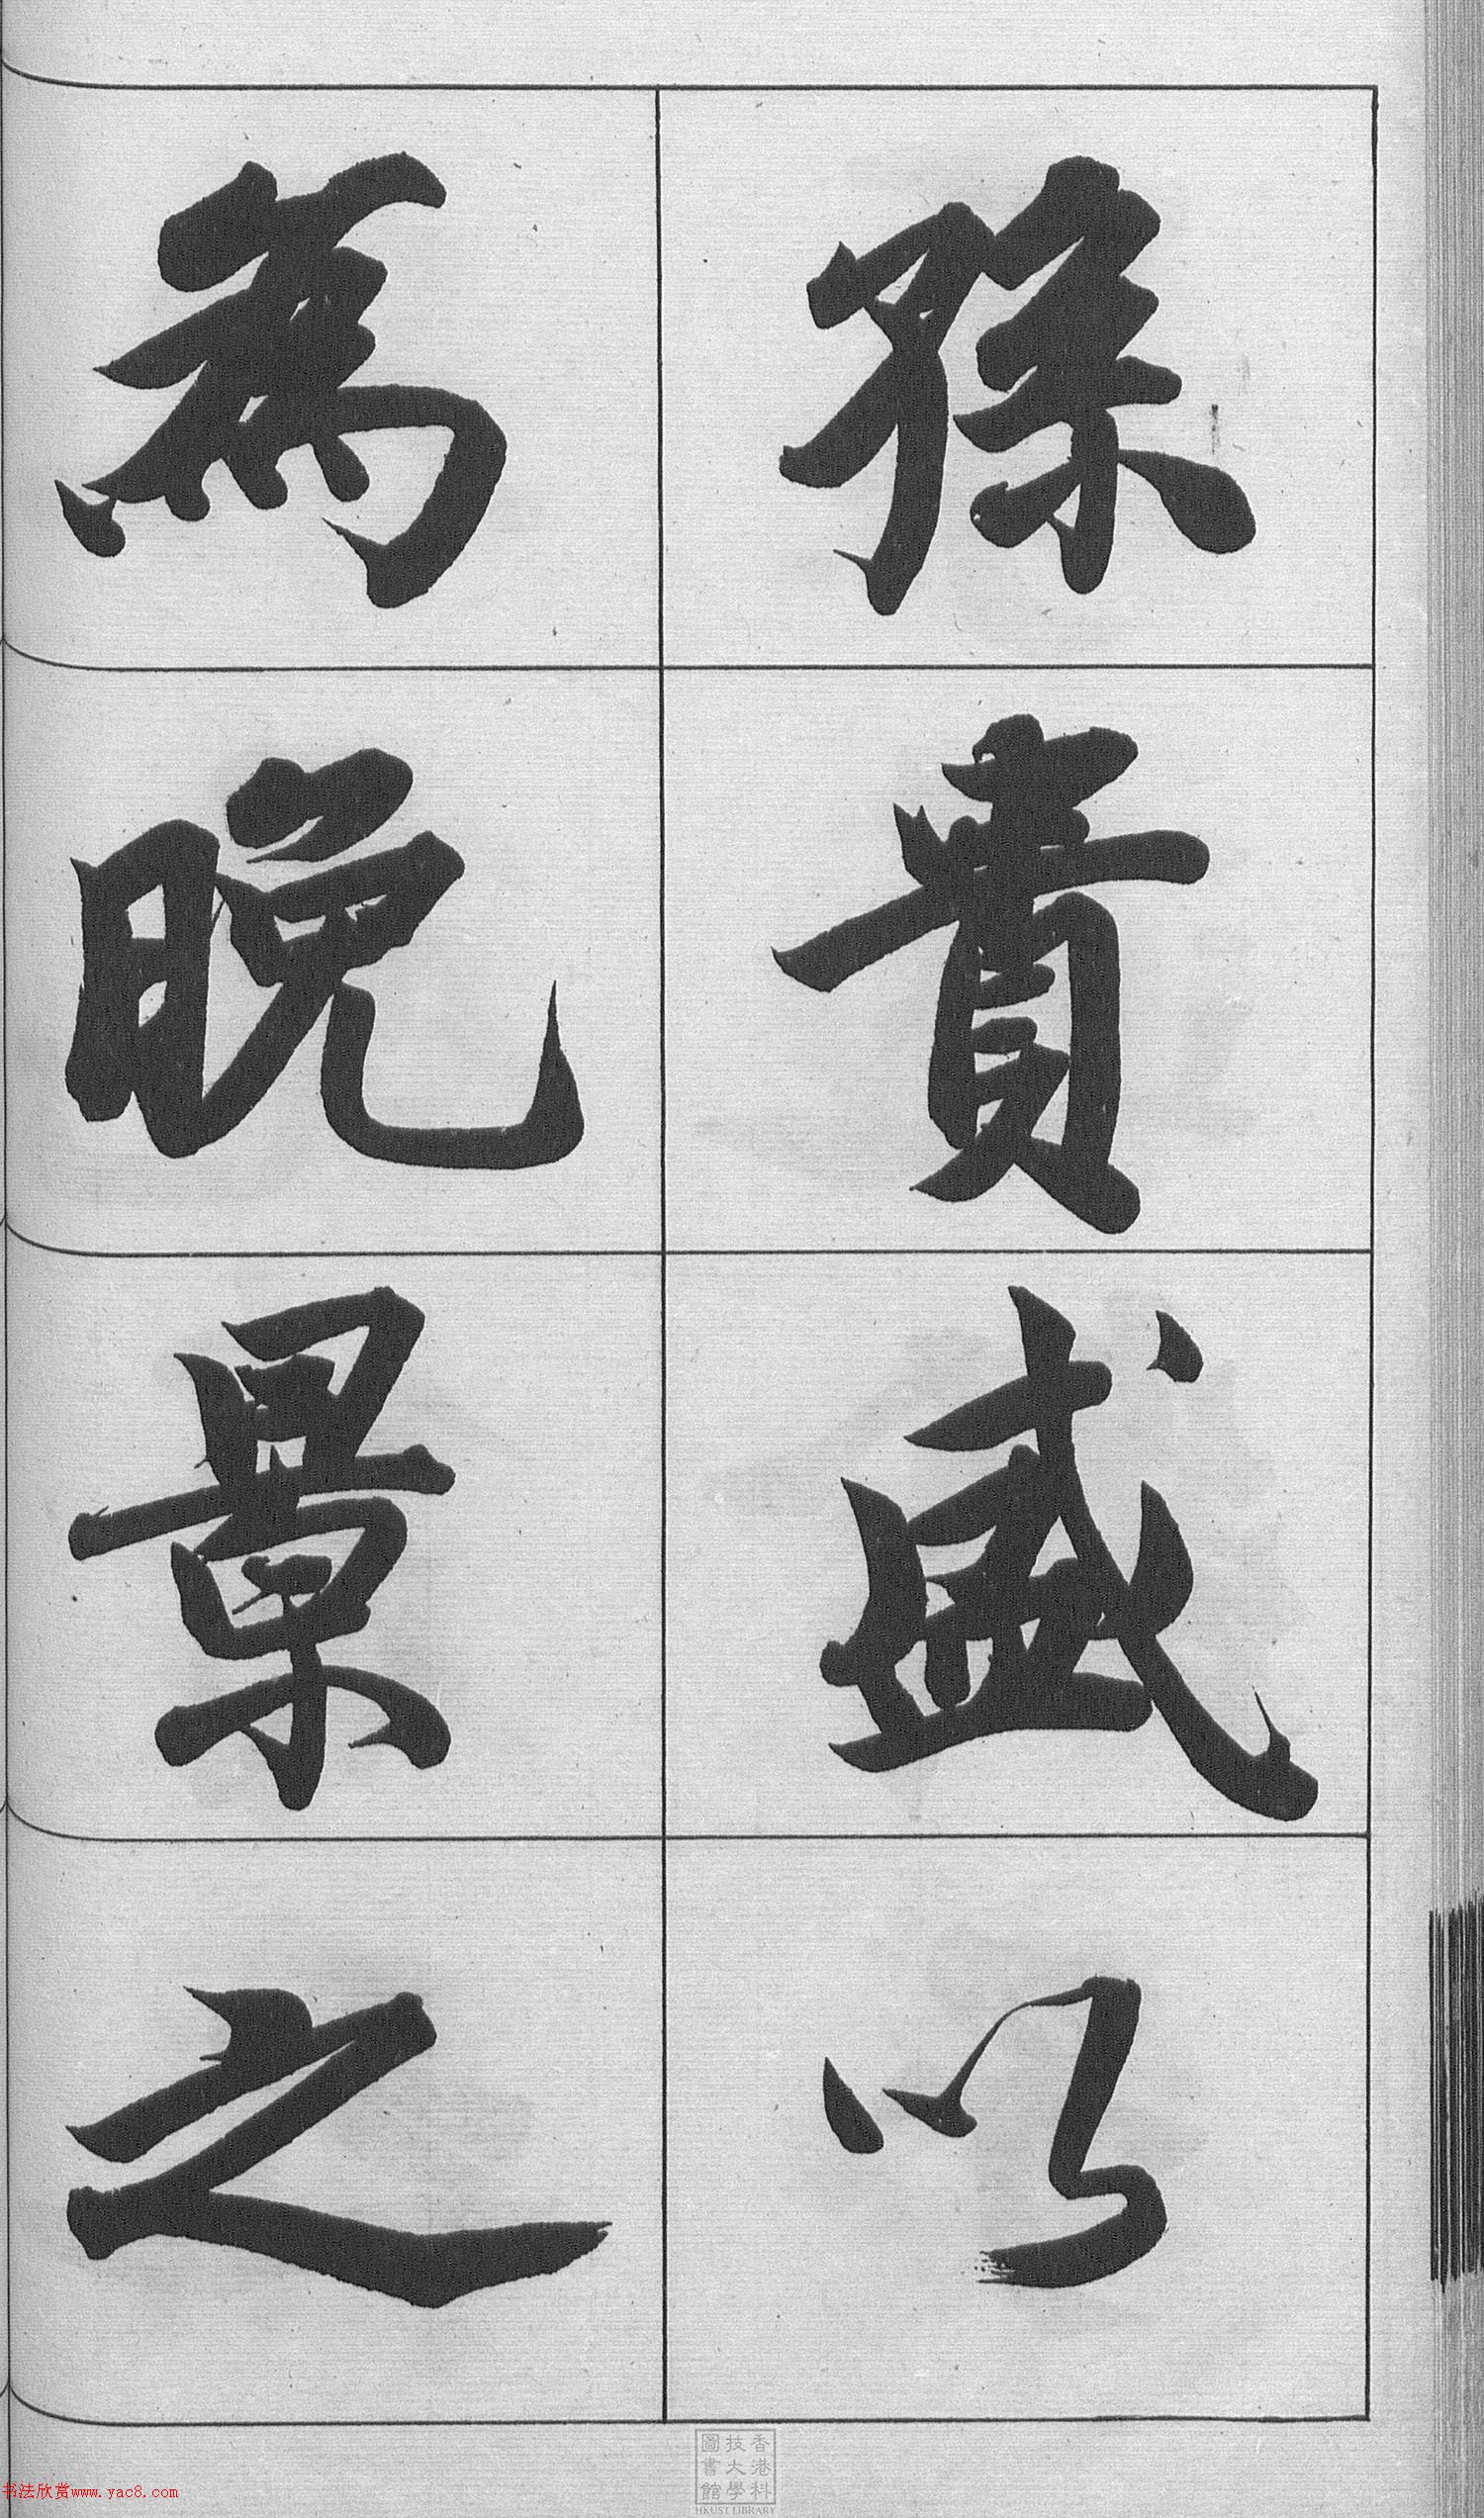 孫貴盛以
為晚景之
香港科
技大學
圖書館
HKUST LIBRARY
书法欣赏www.yac8.com